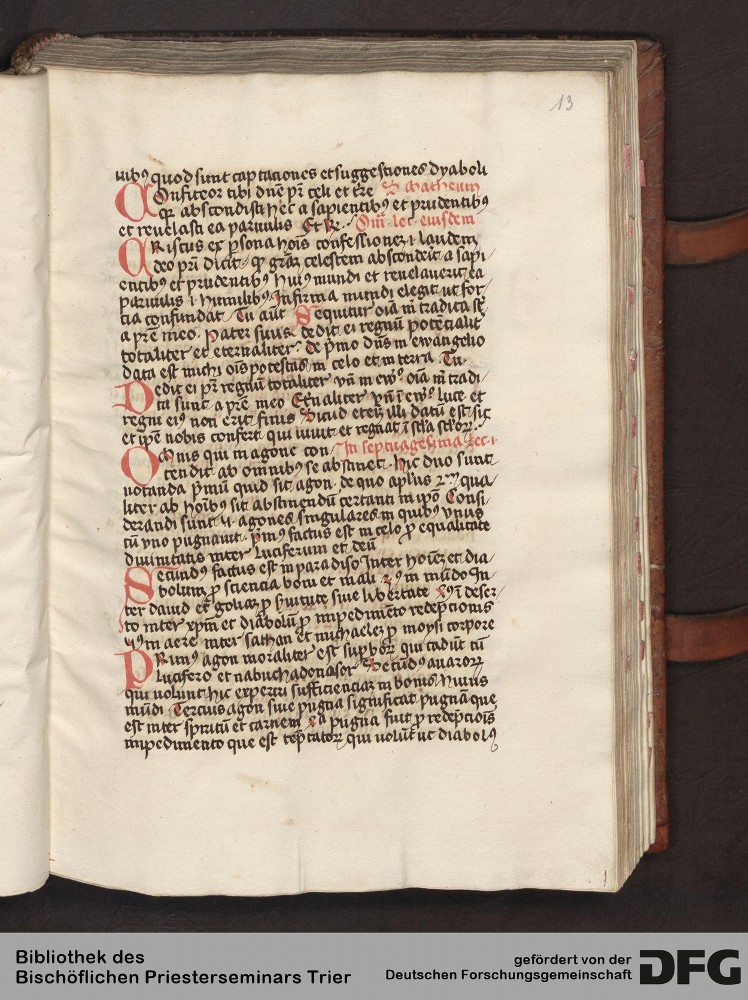 13
uibꝯ quod sunt captationes et suggestiones dyaboli
Confiteor tibi dn̄e pr̄ celi et tr̄e S Matheum
qꝛ abscondisti hec a sapientibꝯ et prudentibꝯ
et reuelasti ea paruulis Et
Xristus ex ꝑsona hoīs confessionez i laudem
deo pr̄i dicit qꝛ grām celestem abscondit a sapi
entibꝯ et prudentibꝯ huiꝯ mundi et reuelauerit ea
paruulis i humilibꝯ Infirma mundi elegit ut for
tia confundat Tu aut Sequitur oīa m̄ tradita st̄
a pr̄e meo Pater suus dedit ei regnū potēcialit̄
totaliter et eternaliter de pꝰmo dn̄s in ewangelio
data est michi oīs potestas in celo et in terra Tu
Dedit ei pr̄ regnū totaliter vn̄ in ewꝰ oīa m̄ tradi
ta sunt a pr̄e meo Et̄naliter vn̄ in ewꝰ luce et
regni eiꝯ non erit finis Sicud et illi datū est sic
et ip̄e nobis confert qui uiuit et regnat ī
Omnis qui in agone con In septuagesima
tendit ab omnibꝯ se abstinet Hic duo sunt
notanda pꝰmū quid sit agon de quo aplꝰus 2ꝰ qua
liter ab hoībꝯ sit abstinendū certanti in ip̄o Consi
derandi sunt agones singulares in quibꝯ vnus
cū vno pugnauit pꝰmꝯ factus est in celo ꝓ equalitate
diuinitatis inter Luciferum et deū
Secundꝯ factus est in paradiso Inter hoīez et dia
bolum ꝓ sciencia boni et mali in mūdo In
ter dauid et goliaz ꝓ siue libertate in deser
to inter xp̄m et diabolū ꝓ impedimento redēpcionis
in aere inter sathan et michaelez ꝓ moysi corpore
Primꝯ agon moraliter est supꝰboꝝ qui cadūt cū
lucifero et nabuchadonasor Secūdꝯ auaroꝝ
qui uolunt hic experiri sufficienciaz in bonis huius
mūdi Tercius agon siue pugna significat pugnā que
est inter spiritū et carnem pugna fuit ꝓ redēpciōis
impedimento que est tēptatoꝝ qui uolūt ut diabolꝯ
Bibliothek des
Bischöflichen Priesterseminars Trier
gefördert von der
Deutschen Forschungsgemeinschaft
DFG